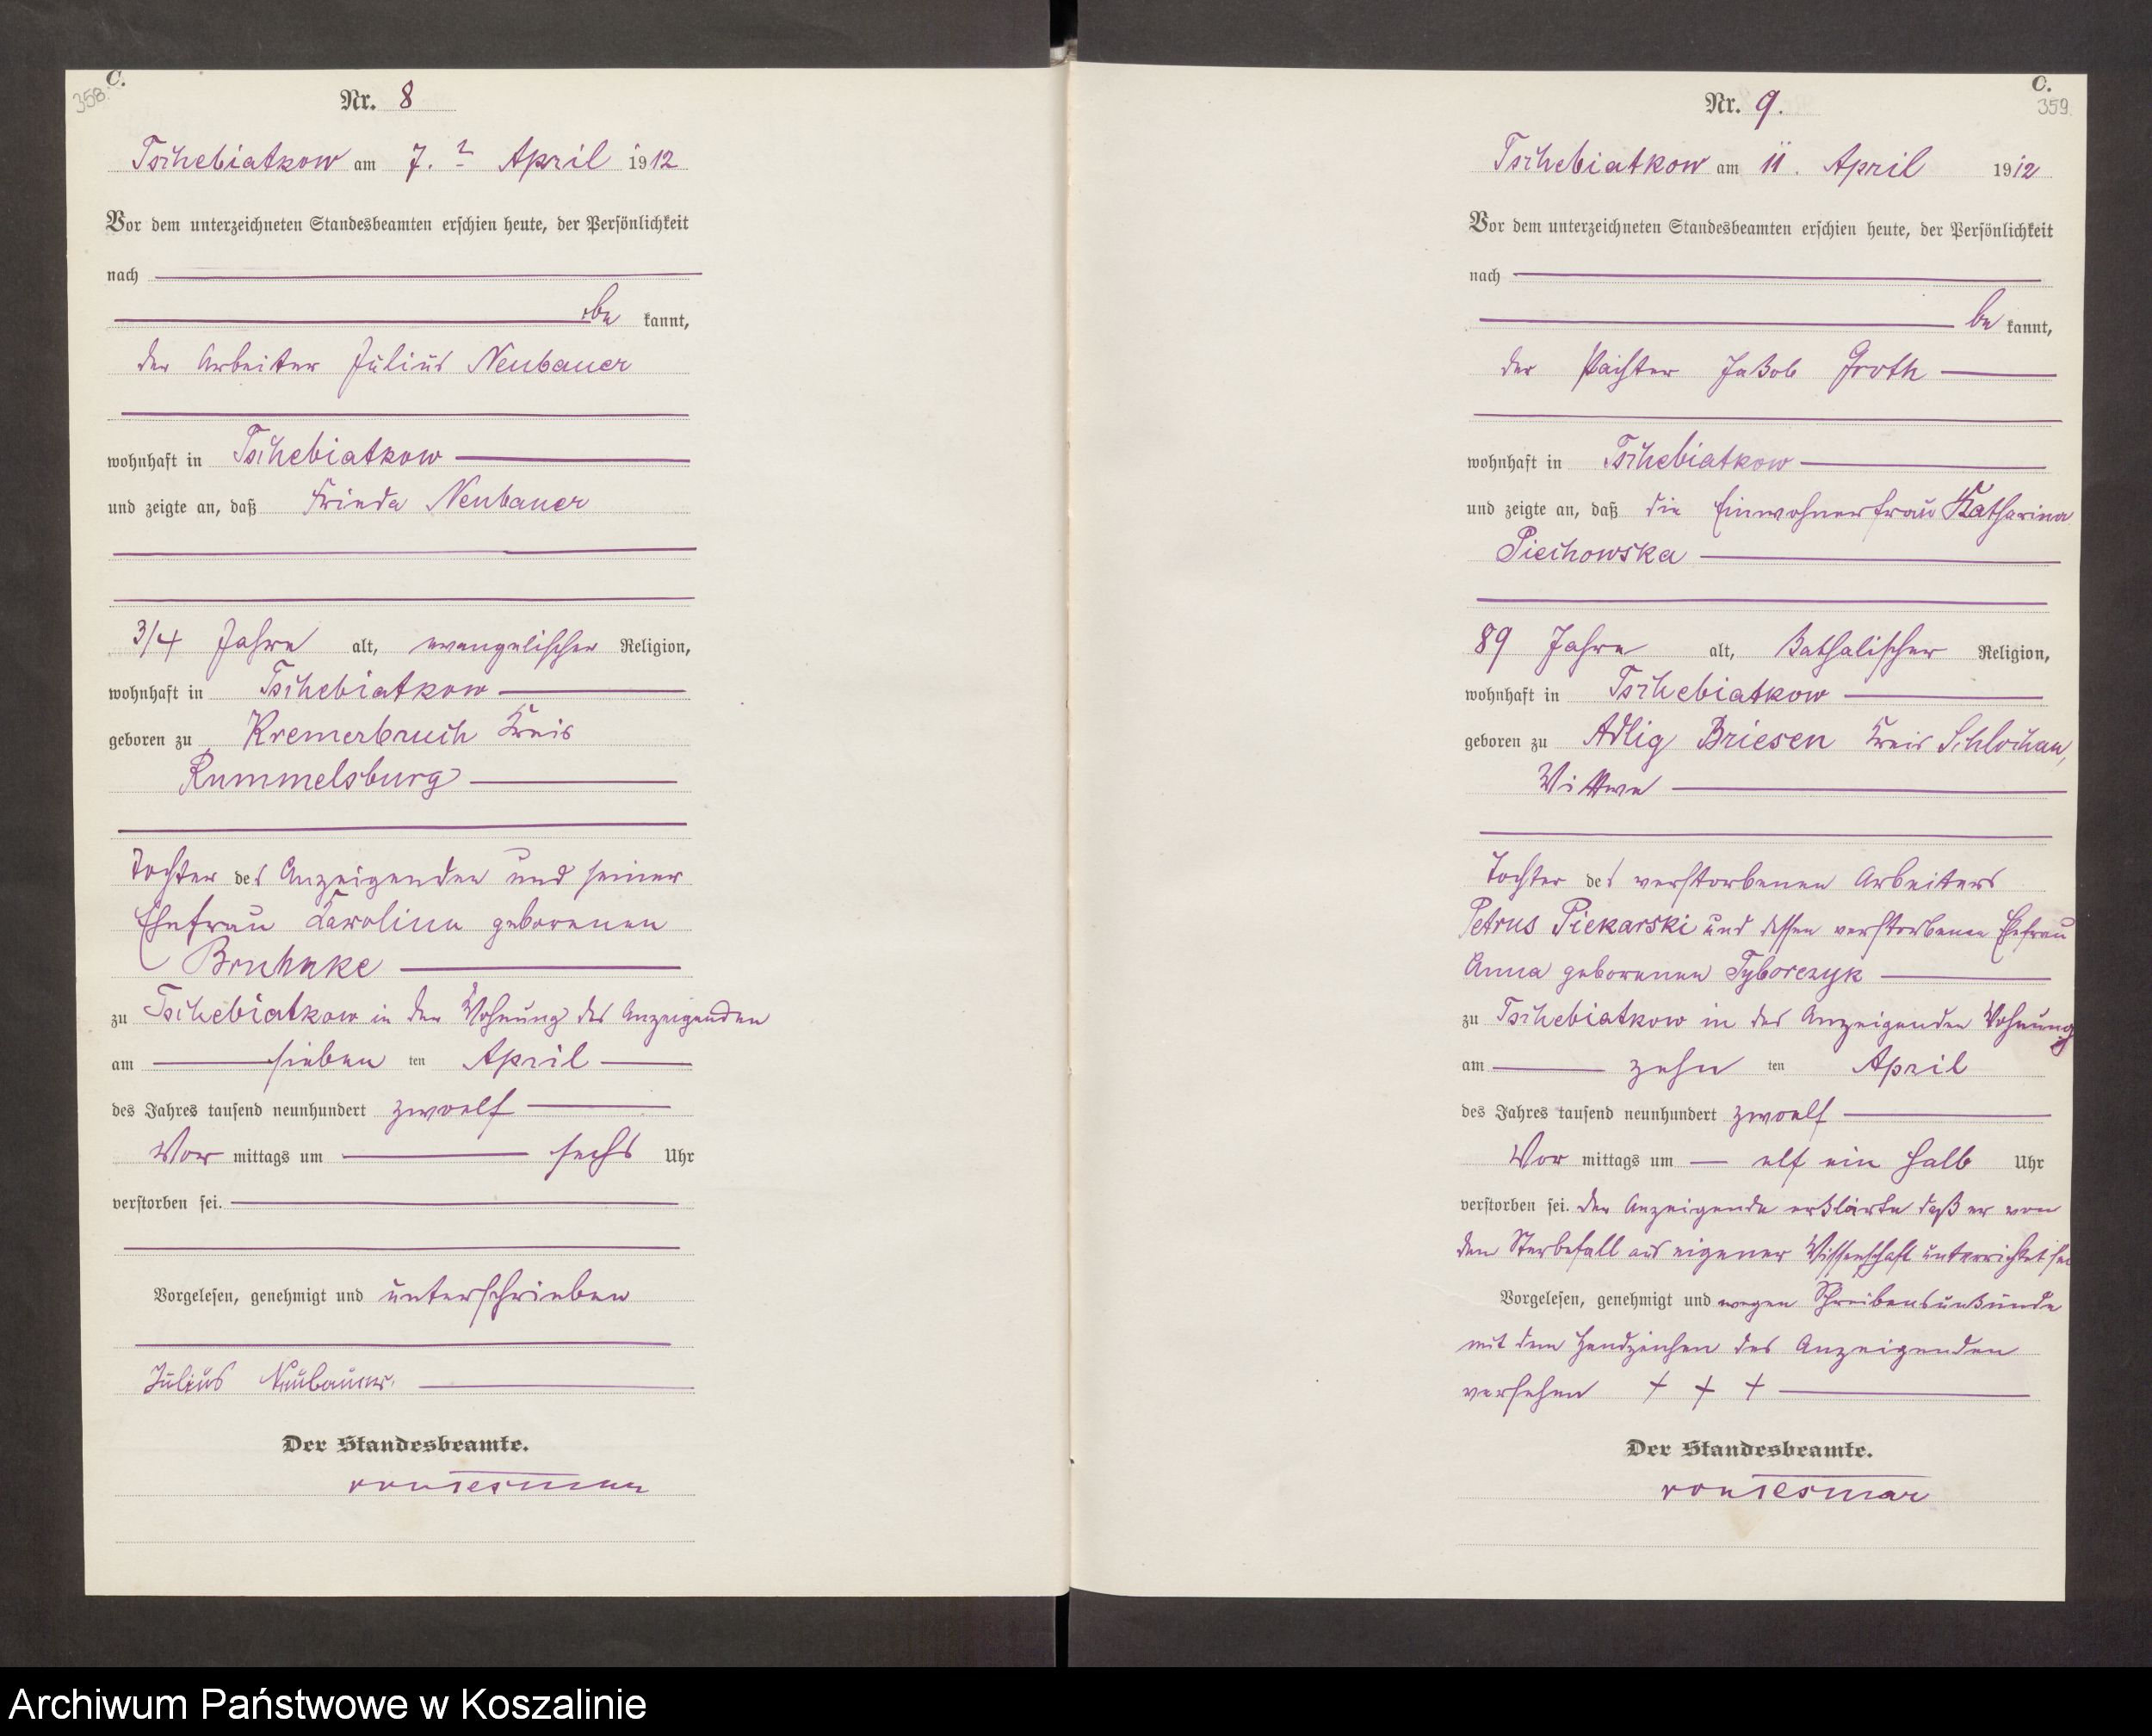 C.
358.
Nr. 8
Tschebiatkow am 7. April 1912
Vor dem unterzeichneten Standesbeamten erschien heute, der Persönlichkeit
nach
be kannt,
der Arbeiter Julius Neubauer
wohnhaft in Tschebiatkow
und zeigte an, daß Frieda Neubauer
3/4 Jahre alt, evangelischer Religion,
wohnhaft in Tschebiatkow
geboren zu Kremerbruch Kreis
Rummelsburg
Tochter des Anzeigenden und seiner
Ehefrau Karoline geborenen
Bruhnke
zu Tschebiatkow in der Wohnung des Anzeigenden
am sieben ten April
des Jahres tausend neunhundert zwoelf
Vor mittags um sechs Uhr
verstorben sei.
Vorgelesen, genehmigt und unterschrieben
Julius Neubauer.
Der Standesbeamte.
C.
359
Nr. 9.
Tschebiatkow am 11. April 1912
Vor dem unterzeichneten Standesbeamten erschien heute, der Persönlichkeit
nach
be kannt,
der Pächter Jakob Groth
wohnhaft in Tschebiatkow
und zeigte an, daß die Einwohnerfrau Katharina
Piechowska
89 Jahre alt, katholischer Religion,
wohnhaft in Tschebiatkow
geboren zu Adlig Briesen Kreis Schlochau,
Wittwe
Tochter des verstorbenen Arbeiters
Petrus Piekarski und dessen verstorbenen Ehefrau
Anna geborenen Tyborczyk
zu Tschebiatkow in des Anzeigenden Wohnung
am zehn ten April
des Jahres tausend neunhundert zwoelf
Vor mittags um elf ein halb Uhr
verstorben sei. Der Anzeigende erklärte daß er von
den Sterbefall aus eigener Wissenschaft unterrichtet sei
Vorgelesen, genehmigt und wegen Schreibensunkunde
mit dem Handzeichen des Anzeigenden
versehen + + +
Der Standesbeamte.
Archiwum Państwowe w Koszalinie